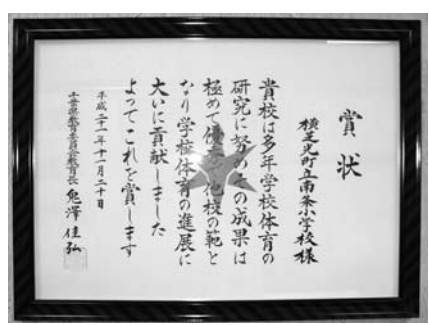 賞状
横芝光町立南条小学校様
貴校は多年学校体育の
研究に努めその成果は
極めて優秀で他校の範と
なり学校体育の進展に
大いに貢献しました
よってこれを賞します
平成二十一年十一月二十日
千葉県教育委員会教育長 鬼澤佳弘